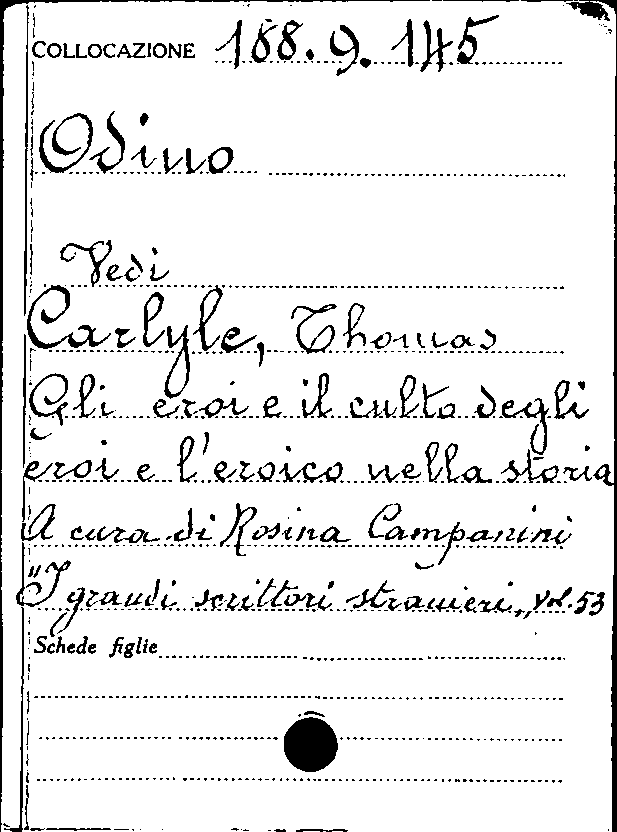 COLLOCAZIONE 188.9.145
Odino
Vedi
Carlyle, Thomas
Gli eroi e il culto degli
eroi e l'eroico nella storia
A cura di Rosina Campanini
"I grandi scrittori stranieri„ vol. 53
Schede figlie